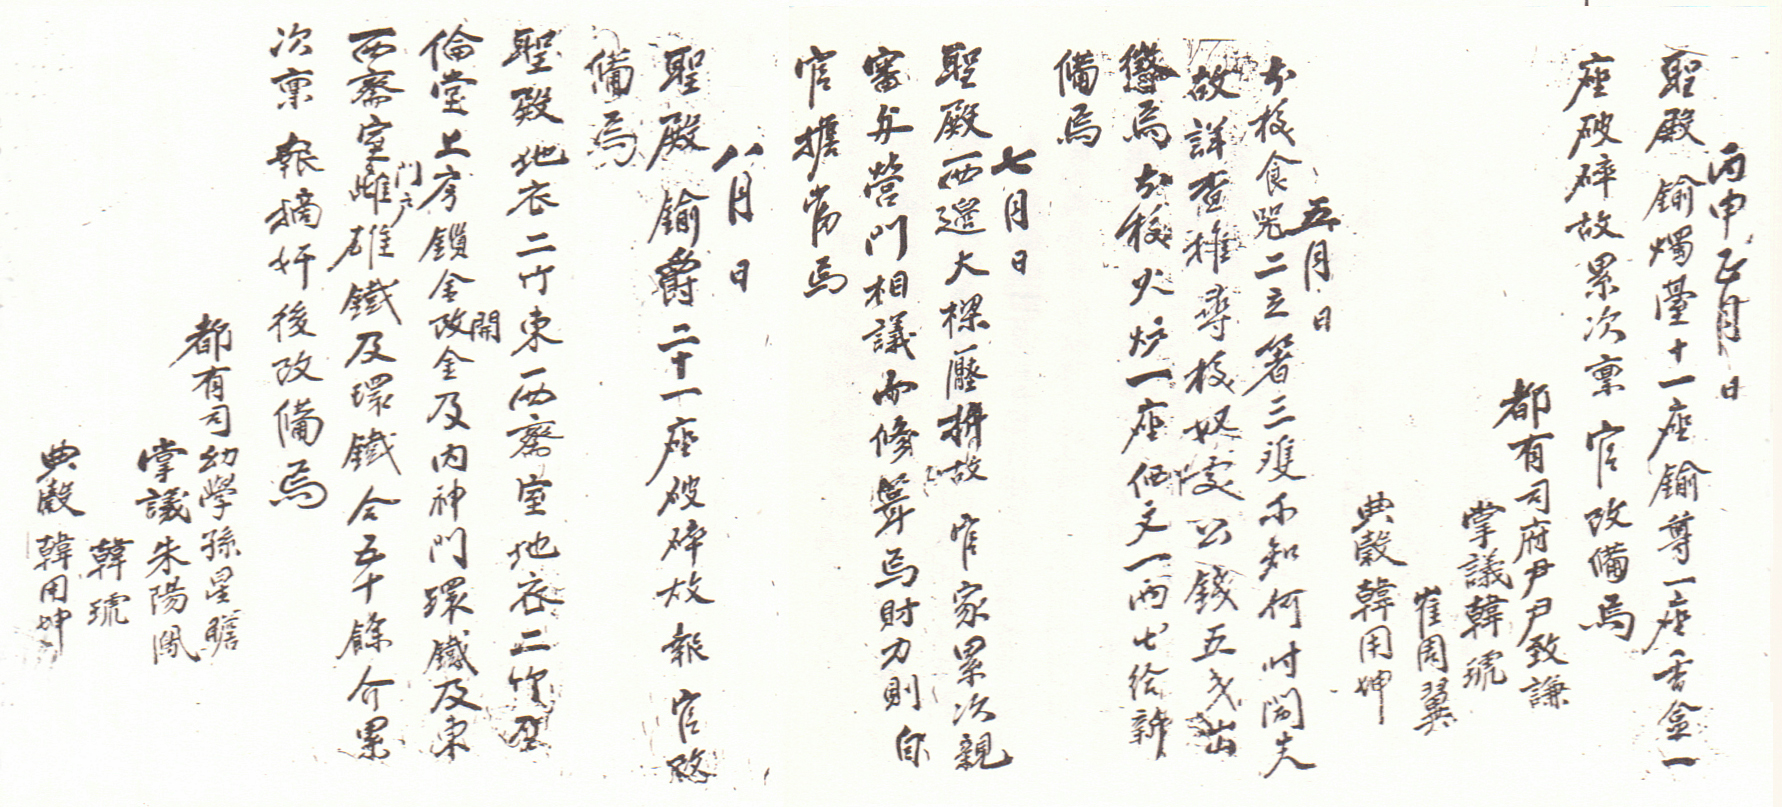 丙申正月日
聖殿鍮燭臺十一座鍮尊一座香盒一
座破碎故累次稟 官改備焉
都有司府尹尹致謙
掌議韓琥
崔周翼
典穀韓用坤
五月日
本校食咒二立箸三雙不知何時閪失
故詳查推尋校奴處公錢五戔出
懲焉本校火炉一座価文一兩七給新
備焉
七月日
聖殿西邊大樑壓折故 官家累次親
審与營門相議而修葺焉財力則自
官擔當焉
八月日
聖殿鍮爵二十一座破碎故報 官改
備焉
聖殿地衣二竹東西齋室地衣二竹
倫堂上房鎖金改金及內神門環鐵及東
開
門戶
西齋室雌雄鐵及環鐵合五十餘介累
次稟報摘奸後改備焉
都有司幼學孫星
掌議朱陽
韓琥
典穀韓用坤